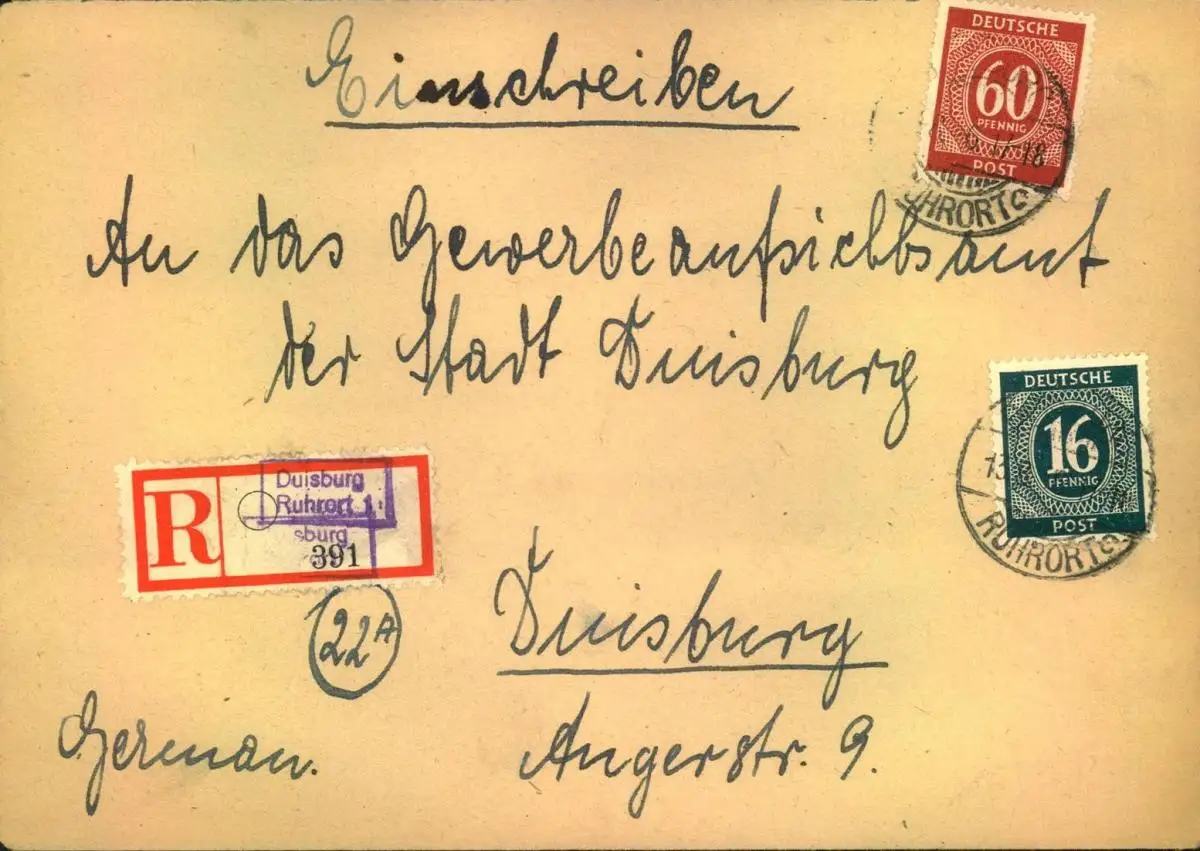 Einschreiben
DEUTSCHE
60
PFENNIG
POST
17-18
RUHRORT
An das Gewerbeaufsichtsamt
der Stadt Duisburg
DEUTSCHE
16
PFENNIG
POST
13
RUHRORT
R
Duisburg
Ruhrort 1
sburg
391
22A
Duisburg
German.
Angerstr. 9.